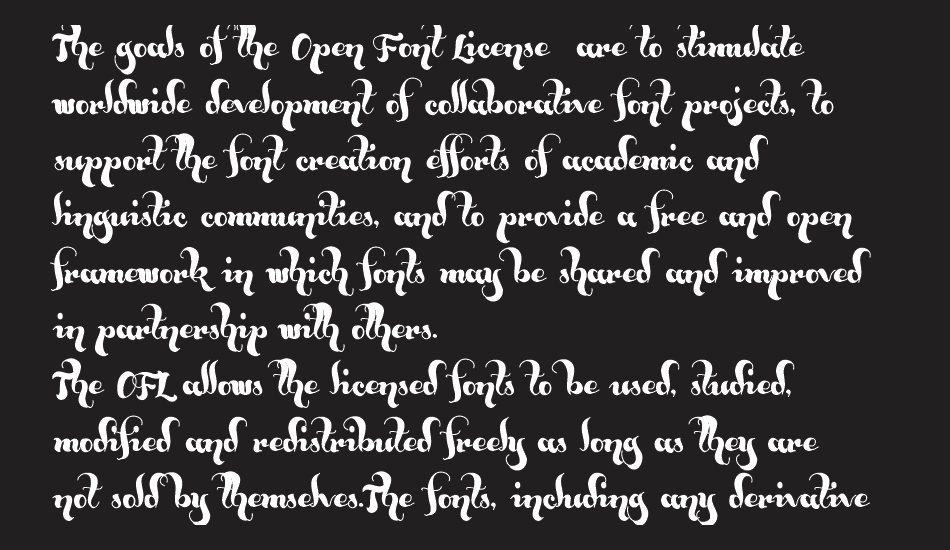 The goals of the Open Font License are to stimulate
worldwide development of collaborative font projects, to
support the font creation efforts of academic and
linguistic communities, and to provide a free and open
framework in which fonts may be shared and improved
in partnership with others.
The OFL allows the licensed fonts to be used, studied,
modified and redistributed freely as long as they are
not sold by themselves.The fonts, including any derivative